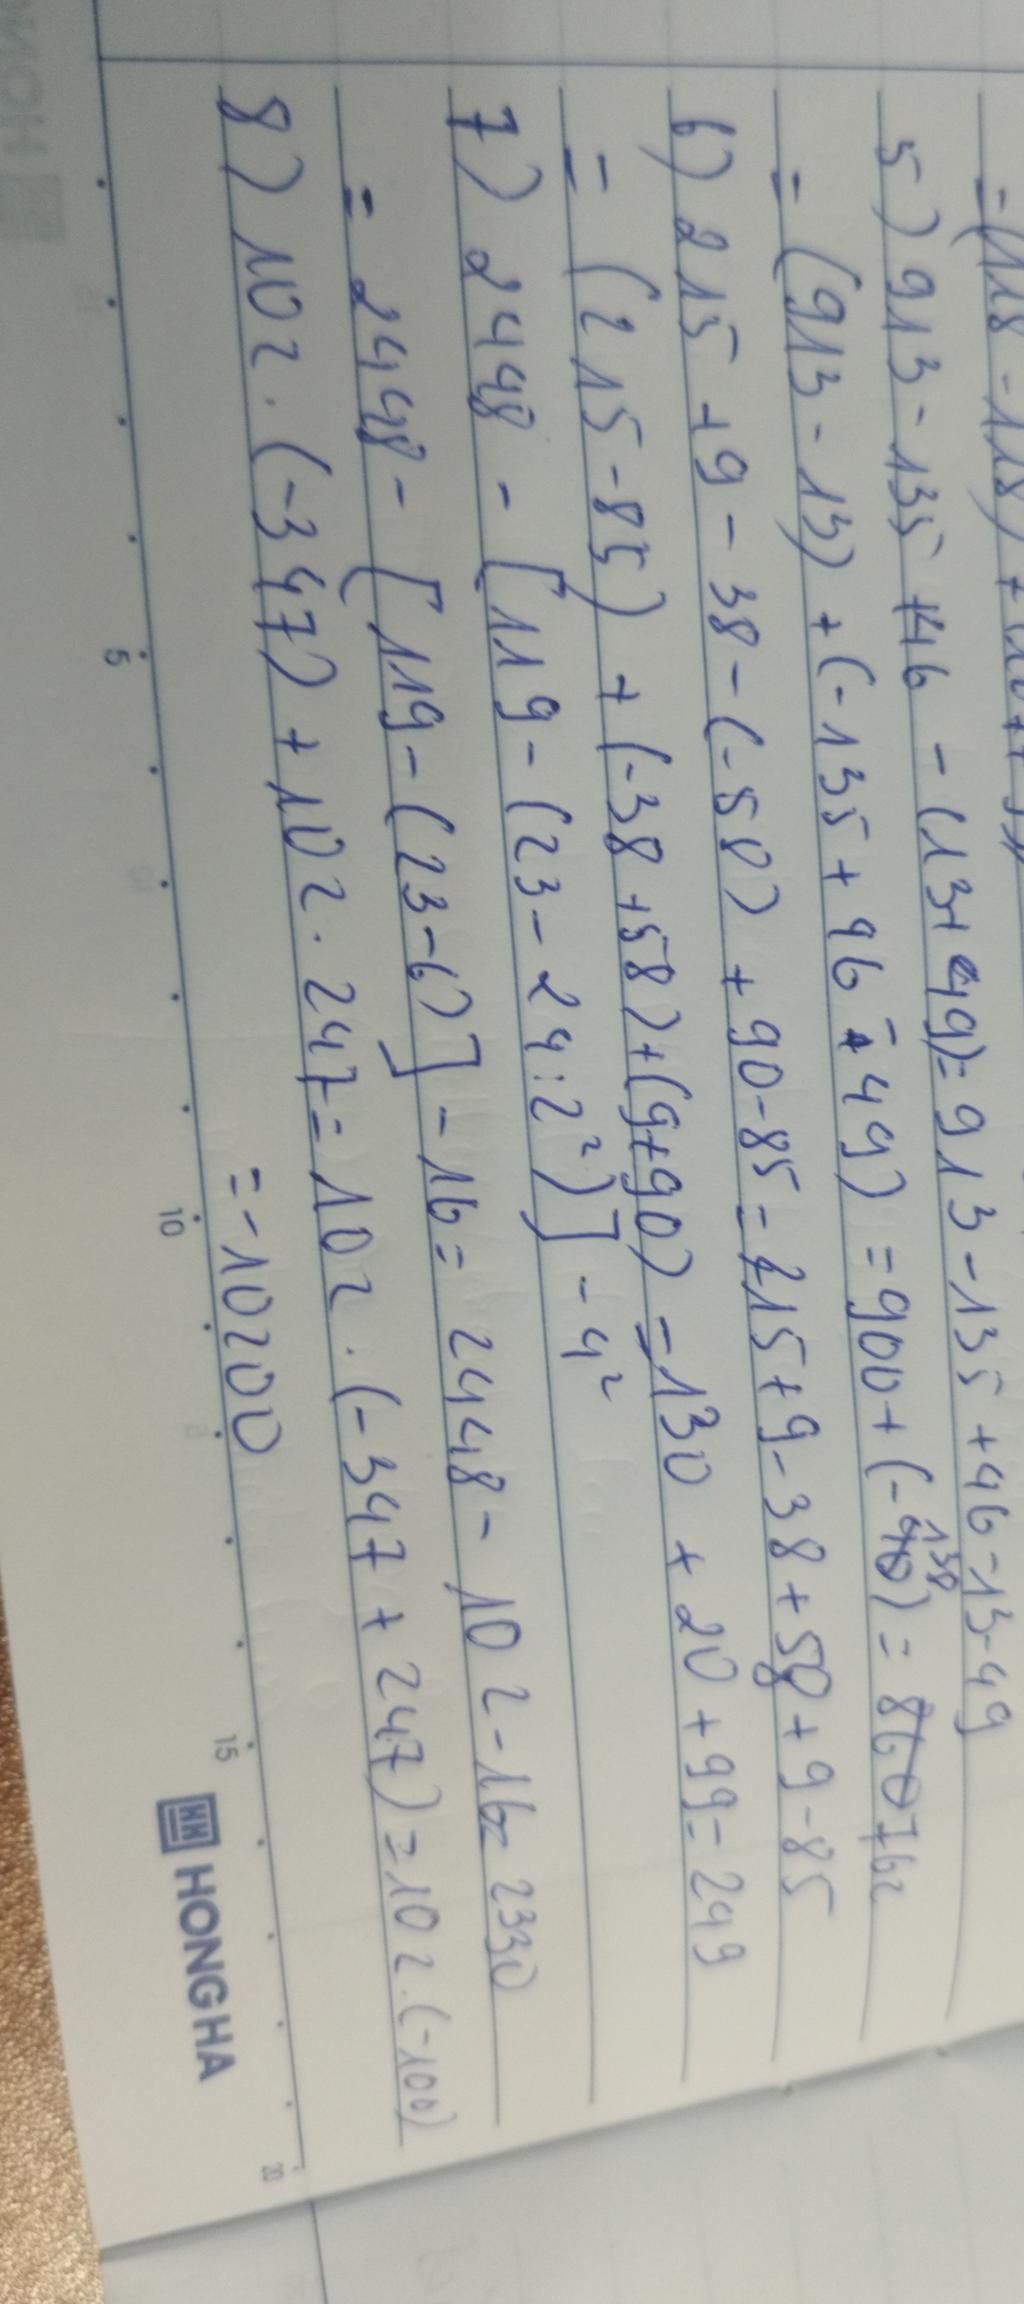 =(118-118)+
5) 913-135+46-(13+49)=913-135+46-13-49
=(913-13)+(-135+46-49)=900+(-138)=762
6) 215+9-38-(-58)+90-85=215+9-38+58+9-85
=(215-85)+(-38+58)+(9+90)=130+20+99=249
7) 2448-[119-(23-24:2²)]-4²
=2448-[119-(23-6)]-16=2448-102-16=2330
8) 102.(-347)+102.247=102.(-347+247)=102.(-100)
=-10200
5 10 15 20
HONGHA